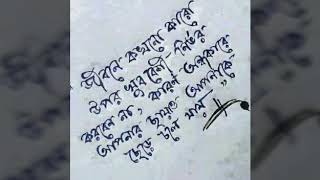 জীবনে কখনো কারো
উপর খুব বেশী নির্ভর
করবেন না, কারন অন্ধকারে
আপনার ছায়াও আপনাকে
ছেড়ে চলে যায়